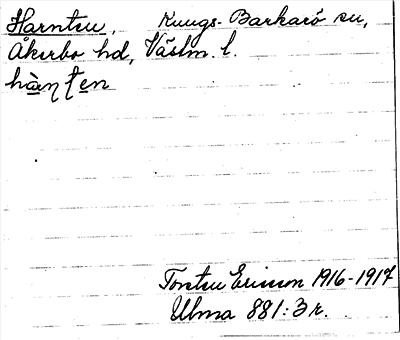 Harnten, Kungs-Barkarö sn,
Åkerbo hd, Västm. l.
hà̱ṇṭen
Torsten Ericson 1916-1917
Ulma 881:3 r.